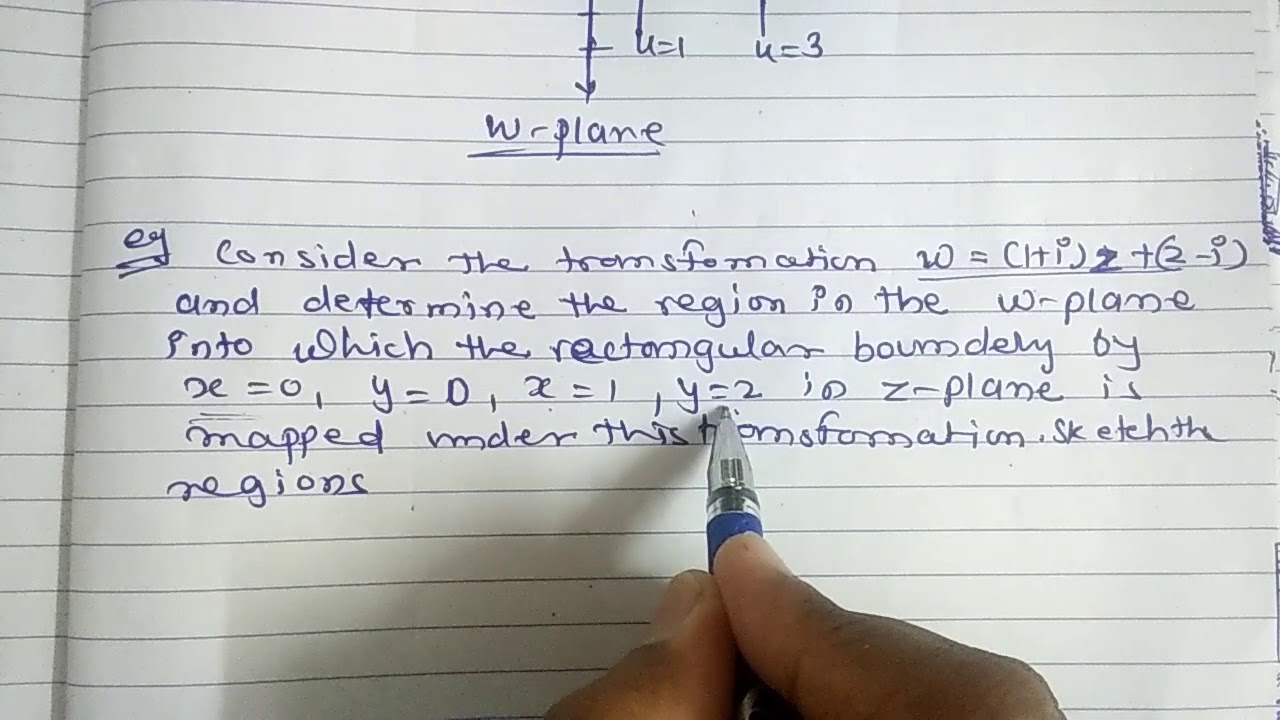 u=1 u=3
w-plane
eg Consider the transfomation w = (1+i)z+(2-i)
and determine the region in the w-plane
into which the rectangular boundely by
x=0, y=0, x=1, y=2 in z-plane is
mapped under this transformation. Sketch the
regions